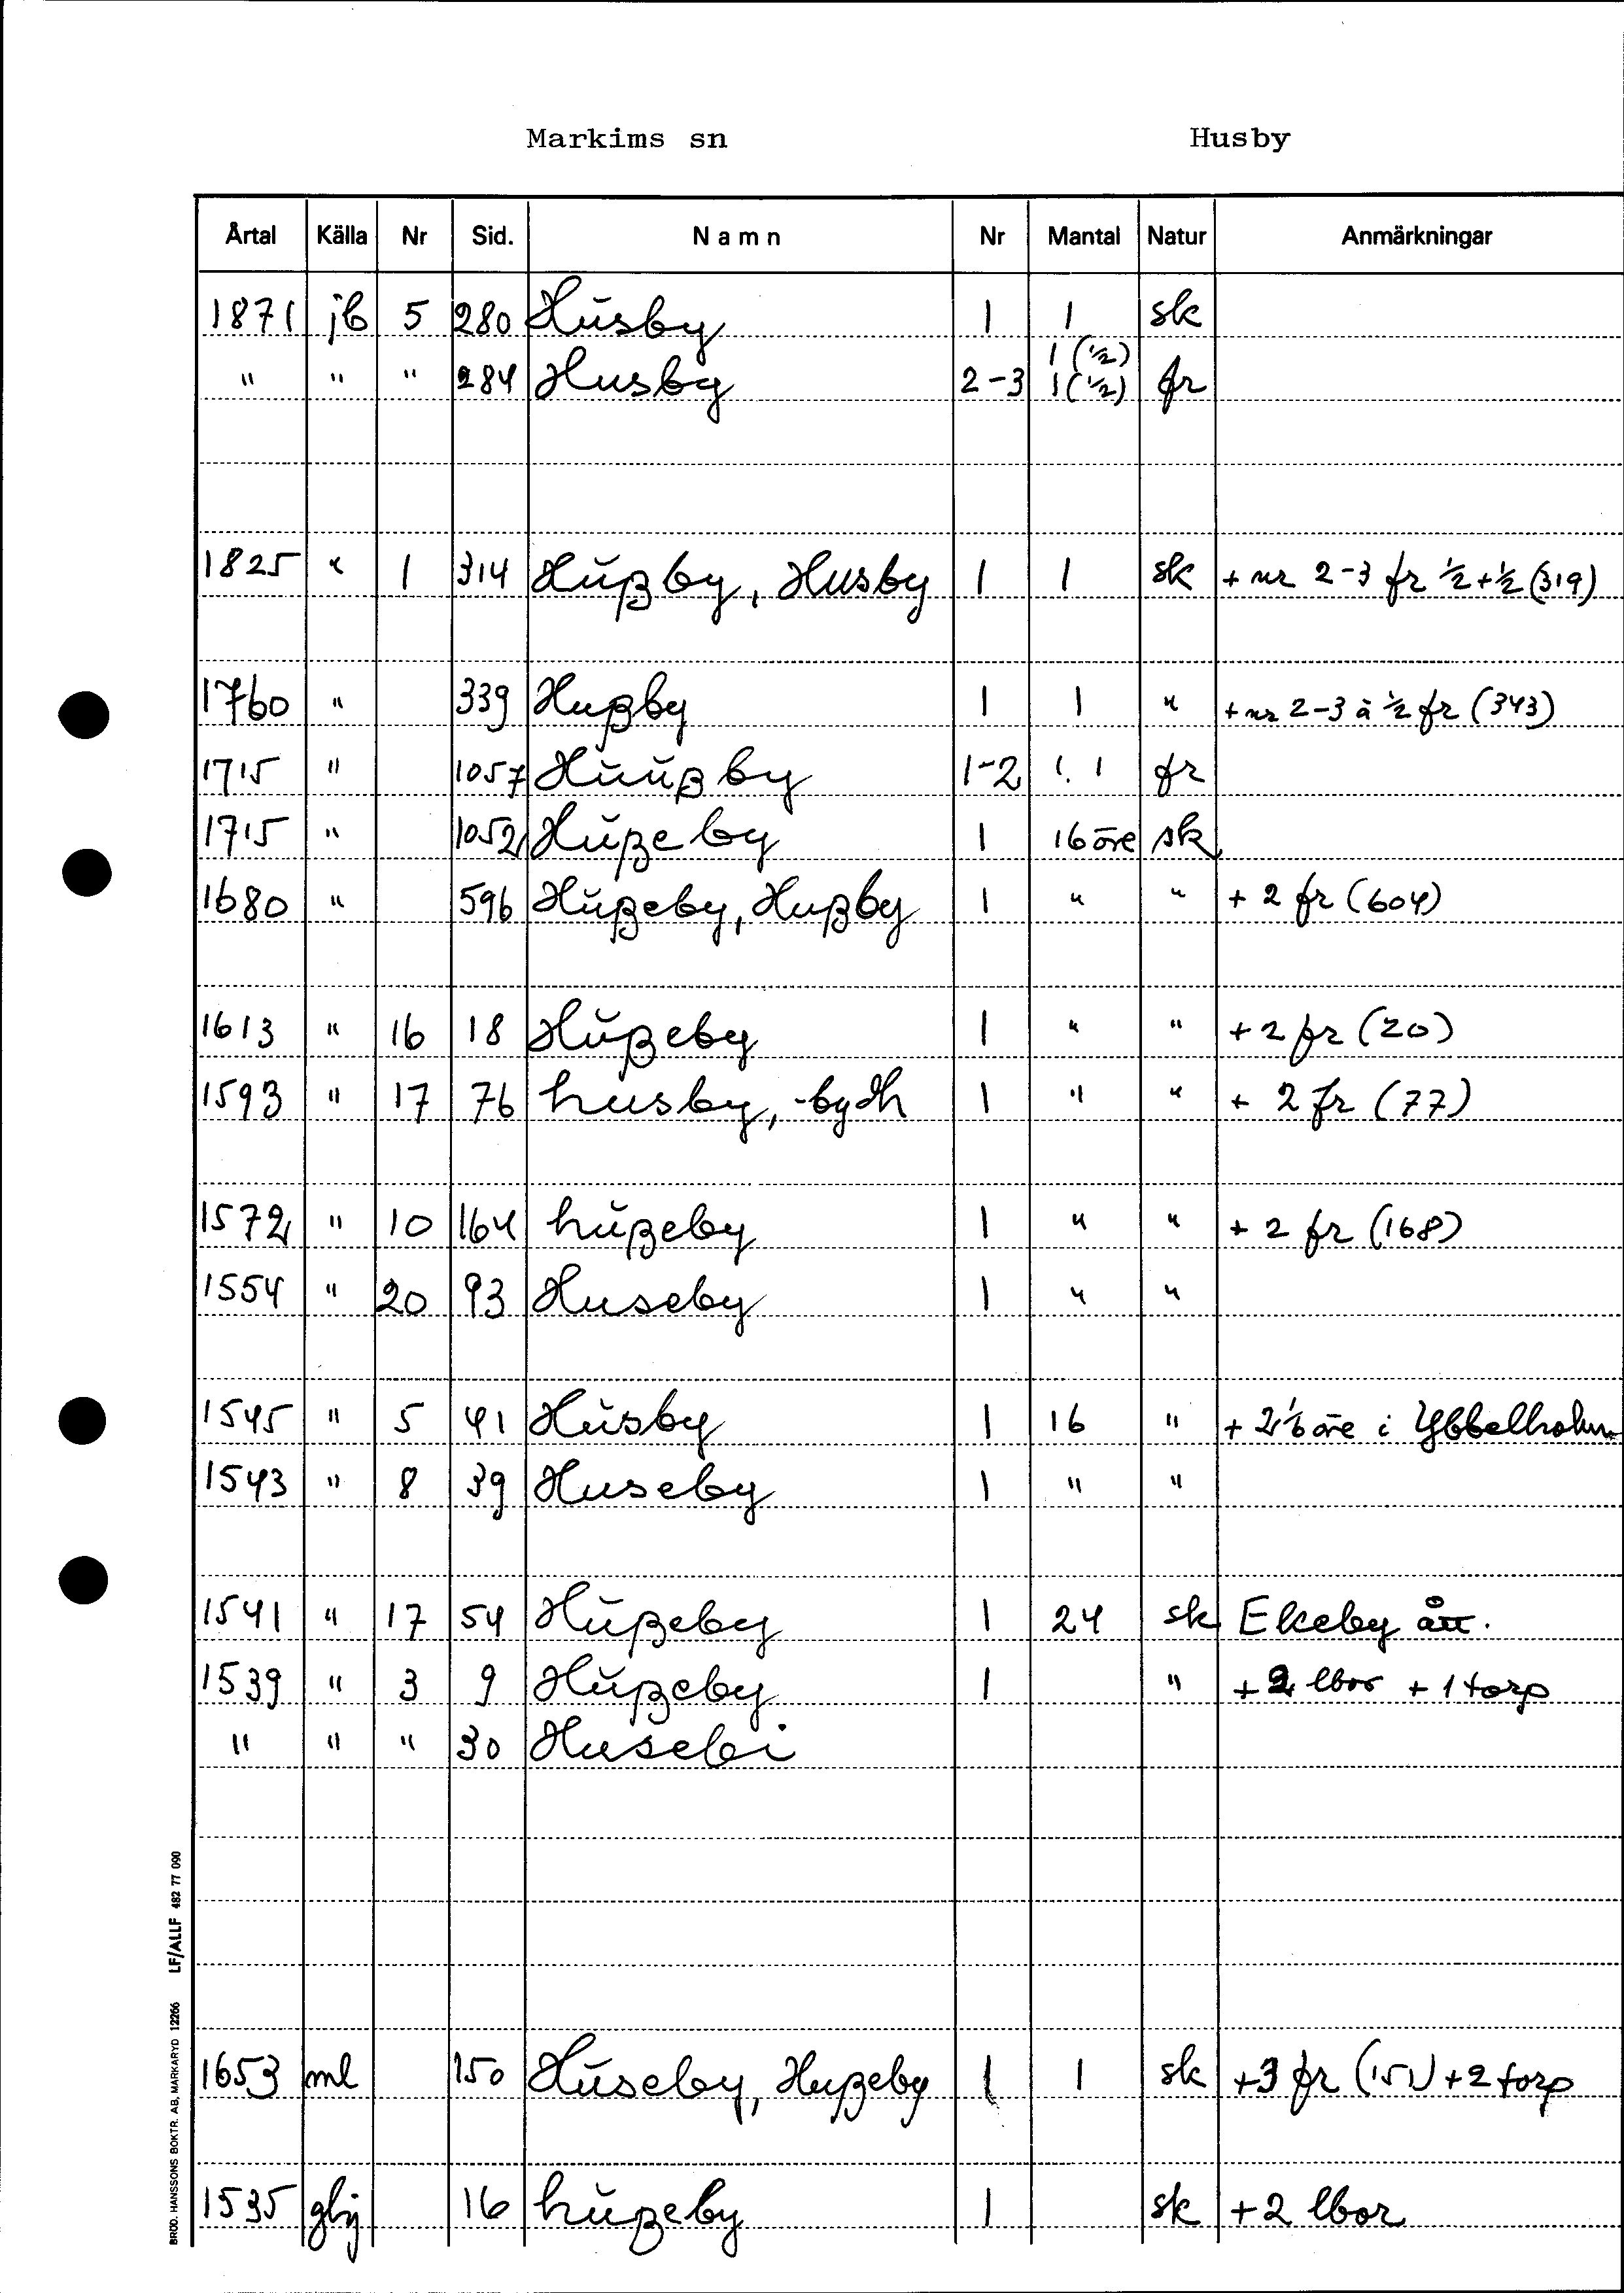 Markims sn Husby
Årtal Källa Nr Sid. Namn Nr Mantal Natur Anmärkningar
1871 jb 5 280 Hŭsby 1 1 sk
1 (1/2)
" " " 284 Husby 2-3 1 (1/2) fr
1825 " 1 314 Hŭßby, Husby 1 1 sk + nr 2-3 fr 1/2+1/2 (319)
1760 " 339 Hußby 1 1 " + nr 2-3 à 1/2 fr (343)
1715 " 1057 Hŭŭßby 1-2 1. 1 fr
1715 " 1052 Hŭßeby 1 16 öre sk
1680 " 596 Hŭßeby, Hußby 1 " " + 2 fr (604)
1613 " 16 18 Hŭßeby 1 " " + 2 fr (20)
1593 " 17 76 husby, -bydh 1 " " + 2 fr (77)
1572 " 10 164 hŭßeby 1 " " + 2 fr (168)
1554 " 20 93 Huseby 1 " "
1545 " 5 41 Hŭsby 1 16 " + 2 1/6 öre i Ybbelholm
1543 " 8 39 Huseby 1 " "
1541 " 17 54 Hŭßeby 1 24 sk Ekeby ått.
1539 " 3 9 Hŭßeby 1 " + 2 lbor + 1 torp
" " " 30 Husebi
1653 ml 150 Hŭseby, Hußeby 1 1 sk +3 fr (151) +2 torp
1535 gbj 16 hŭßeby 1 sk +2 lbor
BRÖD. HANSSONS BOKTR. AB, MARKARYD 12266 LF/ALLF 482 77 090